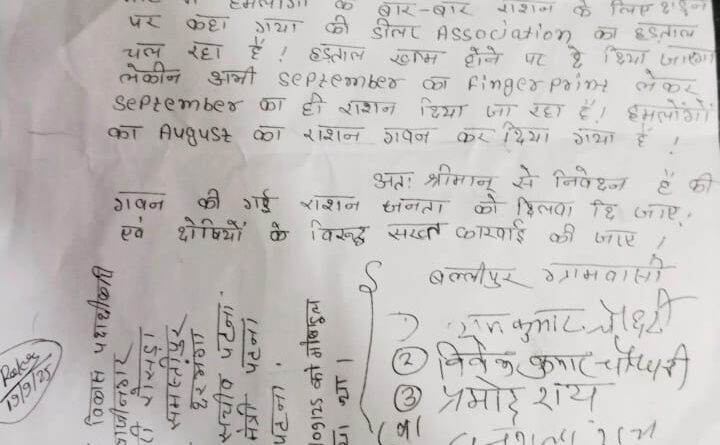 हमलोगों के बार-बार राशन के लिए
पर कहा गया की डीलर Association का हड़ताल
चल रहा है! हड़ताल खत्म होने पर दे दिया जाएगा
लेकीन अभी September का Finger Print लेकर
September का ही राशन दिया जा रहा है! हमलोंगों
का August का राशन गवन कर दिया गया है!
अतः श्रीमान् से निवेदन है की
गवन की गई राशन जनता को दिलवा दि जाए!
एवं दोषियों के विरूद्ध सख्त कारवाई की जाए!
बल्लीपुर ग्रामवासी
राम कुमार चौधरी
② विवेक कुमार चौधरी
③ प्रमोद राय
विकास पदाधीकारी
रोसड़ा
समस्तीपुर
दरभंगा
सचीव पटना
मंत्री पटना
पटना
19/9/25